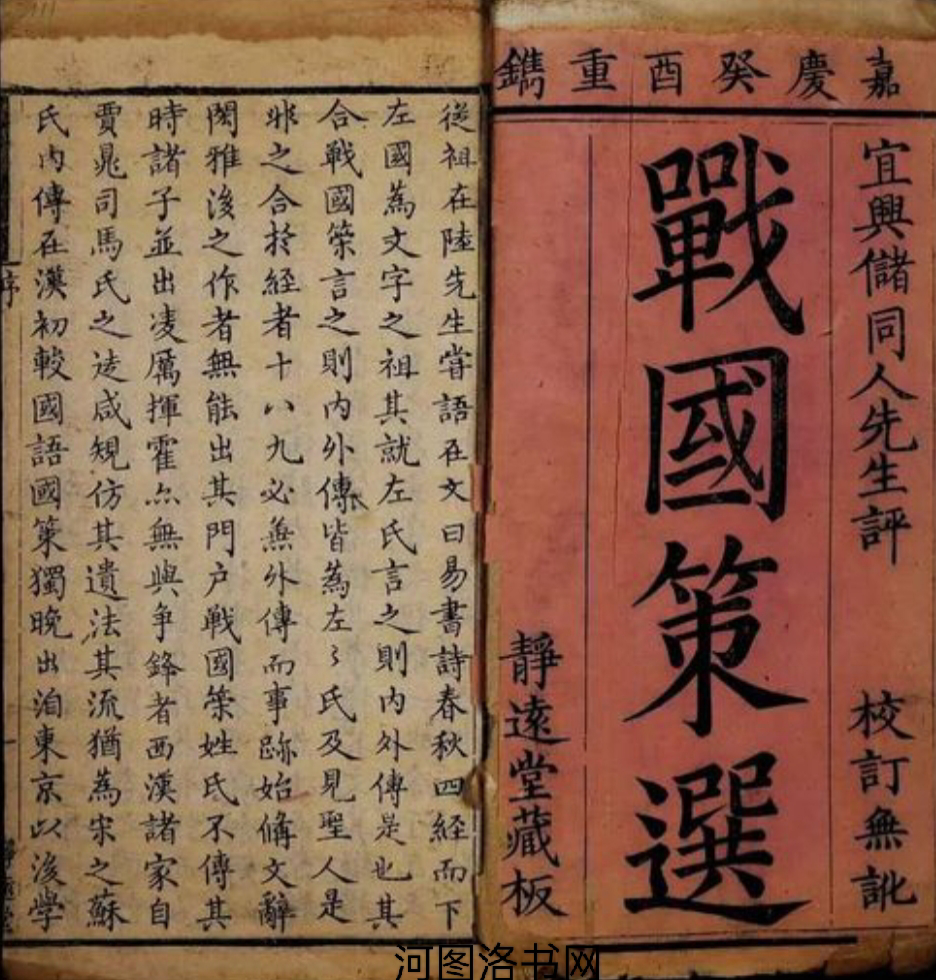 嘉慶癸酉重鐫
宜興儲同人先生評 校訂無訛
戰國策選
靜遠堂藏板
從祖在陸先生嘗語在文曰易書詩春秋四經而下
左國為文字之祖其就左氏言之則內外傳是也其
合戰國策言之則內外傳皆為左〻氏及見聖人是
非之合於經者十八九必兼外傳而事跡始備文辭
閎雅後之作者無能出其門户戰國策姓氏不傳其
時諸子並出凌厲揮霍亦無與争鋒者西漢諸家自
賈晁司馬氏之徒咸規仿其遺法其流猶為宋之蘇
氏內傳在漢初較國語國策獨晚出洎東京以後學
序
一
河图洛书网